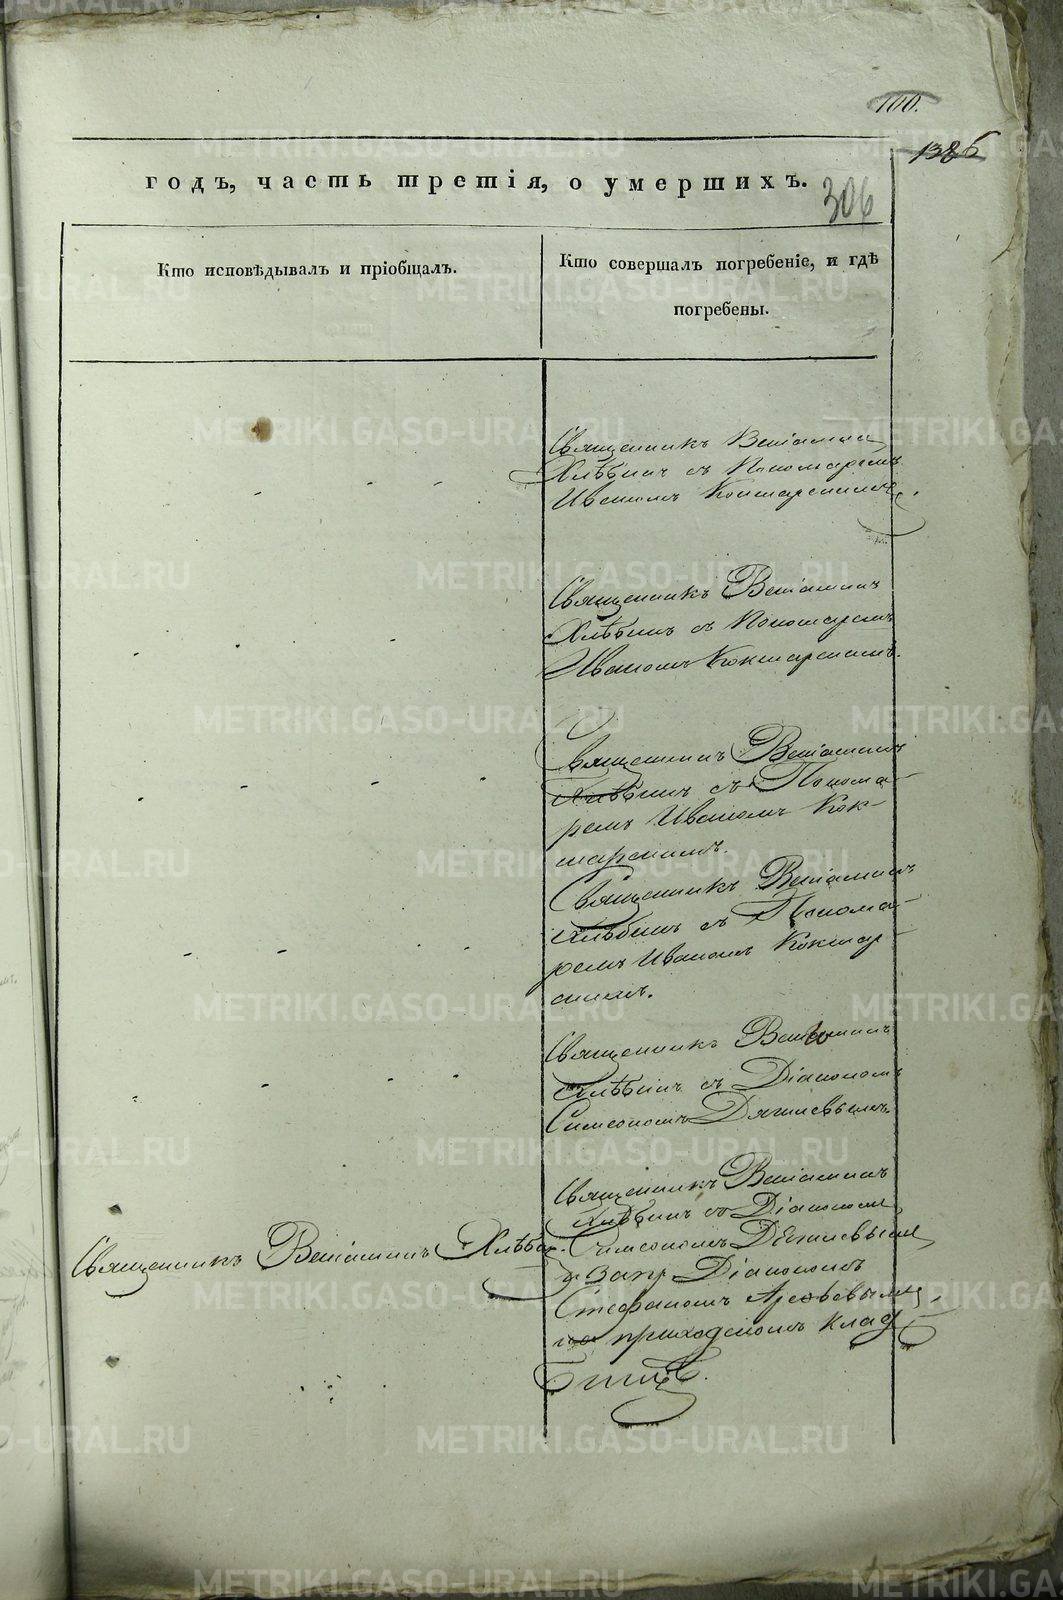 100.
1386
годъ, часть третія, о умершихъ.
306
Кто исповѣдывалъ и пріобщалъ.
Кто совершалъ погребеніе, и гдѣ
погребены.
Священникъ Веніамин
Хлѣбин съ Пономаремъ
Иваномъ Кокшарскимъ.
Священникъ Веніаминъ
Хлѣбинъ съ Пономаремъ
Иваномъ Кокшарскимъ.
Священникъ Веніаминъ
Хлѣбинъ съ Понома-
ремъ Иваномъ Кок-
шарскимъ.
Священникъ Веніаминъ
Хлѣбинъ съ Понома-
ремъ Иваномъ Кокшар-
скимъ.
Священникъ Веніаминъ
Хлѣбинъ съ Діакономъ
Симеономъ Дягилевымъ
Священникъ Веніаминъ
Хлѣбинъ съ Діакономъ
Священникъ Веніаминъ Хлѣбин. Симеономъ Дягилевымъ
и Діакономъ
Стефаномъ Арефьевымъ,
на приходскомъ клад-
бищѣ.
METRIKI.GASO-URAL.RU